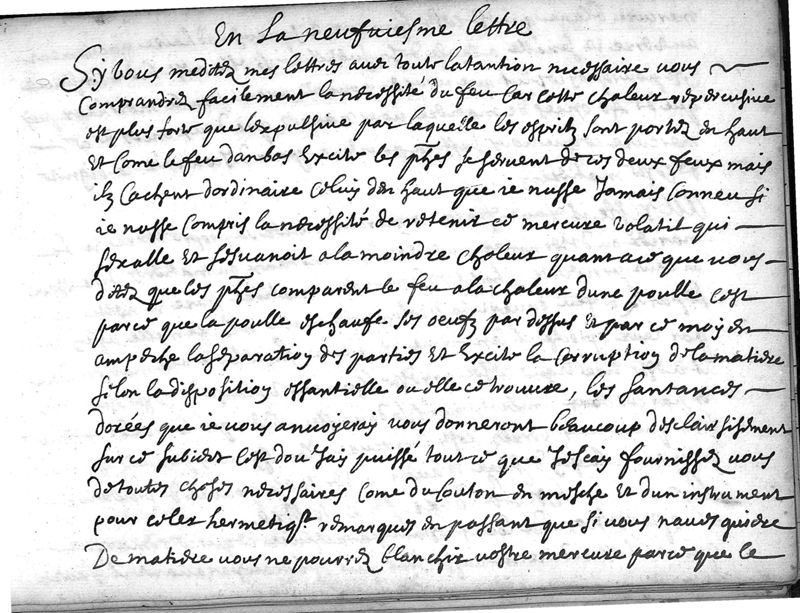 En La neufuiesme lettre
Sy vous meditez mes lettres avec toute latantion necessaire vous
Comprandrez facilement la necessité du feu Car cette chaleur repercusive
est plus forte que lexpulsive par laquelle les espritz sont portez en haut
Et Come le feu danbas Excite les phes se servent de ces deux feux mais
ilz Cachent dordinaire Celuy den haut que ie nusse Jamais Conneu si
ie nusse Compris la necessité de retenir ce mercure volatil qui
sexalle et sesvanoit a la moindre chaleur quant a ce que vous
ditez que les phes comparent le feu a la chaleur dune poulle c'est
parce que la poulle eschaufe ses oeufz par dessus Et par ce moyen
ampeche la separation des parties Et Excite la Corruption de la matiere
selon la disposition essantielle ou elle ce trouvure, les santances
dorées que ie vous anvoyeray vous donneront beaucoup desclairsisement
sur ce subiect c'est dou Jay puissé tout ce que Jescay fournissez vous
de toutes choses necessaires Come du Couton en mesche Et dun instrument
pour celer hermetiqt remarques en passant que si vous naves guiere
De matiere vous ne pourrez blanchir vostre mercure parce que le